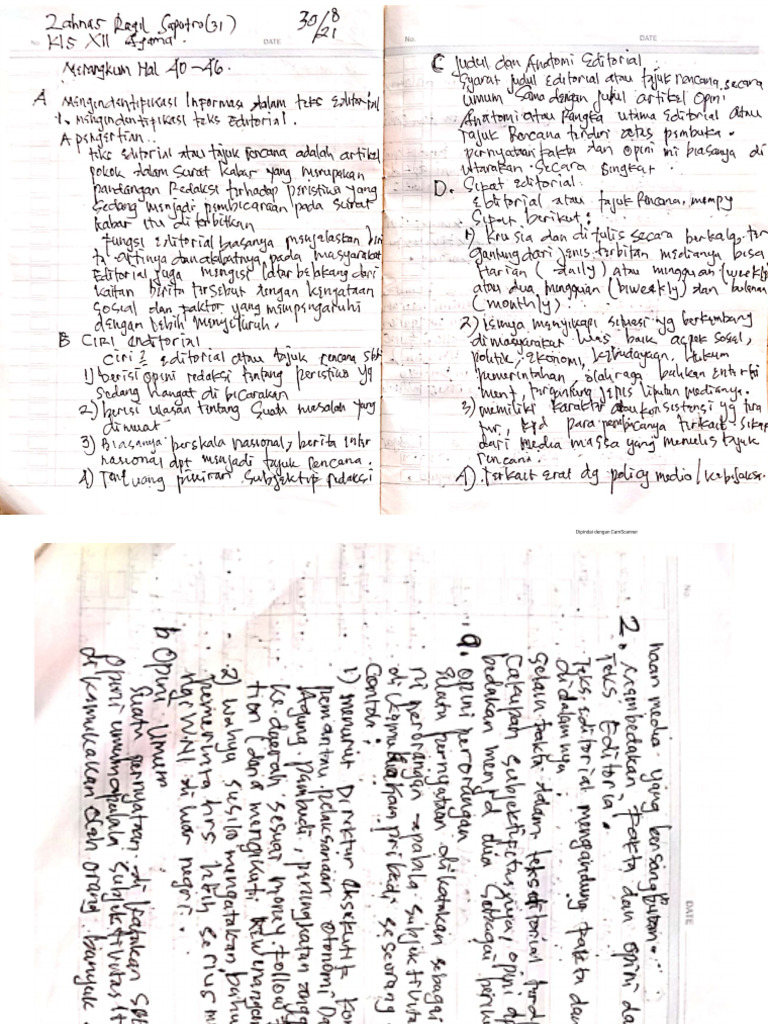 Zahnas Ragil Saputro (31)
30/8
21
No
Kls XII Agama.
DATE
Merangkum Hal 40-46.
A Mengindentifikasi Informasi dalam teks Editorial
1. Mengindentifikasi teks Editorial.
A pengertian..
teks editorial atau tajuk rencana adalah artikel
pokok dalam surat kabar yang merupakan
pandangan Redaksi terhadap peristiwa yang
sedang menjadi pembicaraan pada surat
kabar itu diterbitkan
fungsi Editorial biasanya menjelaskan beri
ta artinya dan akibatnya pada masyarakat
Editorial juga mengisi latar belakang dari
kaitan berita tersebut dengan kenyataan
sosial dan faktor yang mempengaruhi
dengan lebih menyeluruh.
B Ciri Editorial
Ciri 2 editorial atau tajuk rencana sbb
1) berisi opini redaksi tentang peristiwa yg
sedang hangat di bicarakan
2) berisi ulasan tentang suatu masalah yang
dimuat
3) Biasanya berskala nasional, berita inter
nasional dpt menjadi tajuk rencana.
4) Tertuang pikiran subjektif redaksi
No.
DATE
C Judul dan Anatomi Editorial
Syarat judul editorial atau tajuk rencana secara
umum sama dengan judul artikel opini
Anatomi atau rangka utama Editorial atau
Tajuk Rencana terdiri atas pembuka.
pernyataan fakta dan opini ini biasanya di
utarakan secara singkat.
D. Sifat editorial
Editorial atau tajuk Rencana, mempy
sifat berikut:
1) Krusia dan di tulis secara berkala, ter
gantung dari jenis terbitan medianya bisa
Harian (daily) atau mingguan (weekly)
atau dua mingguan (biweekly) dan bulanan
(monthly)
2) isinya menyikapi situasi yg berkembang
dimasyarakat luas baik aspek sosial,
politik, Ekonomi, kebudayaan, Hukum
pemerintahan, olahraga bahkan entertai
ment, tergantung jenis liputan medianya.
3) memiliki karakter atau konsistensi yg tera
tur, kpd para pembacanya terkait sikap
dari media massa yang menulis tajuk
rencana.
4) Terkait erat dg policy media/kebijaksa-
Dipindai dengan CamScanner
No.
DATE
naan media yang bersangkutan.
2. membedakan fakta dan opini da
Teks Editorial.
Teks Editorial mengandung fakta dan
didalamnya
selain fakta dalam teks editorial terdp
Cakupan subjektifitasnya, opini dp
bedakan menjd dua sebagai beriku
a. opini perorangan
suatu pernyataan dikatakan sebagai
ni perorangan apabila subjektivita
dikemukakan pribadi seseorang
Contoh:
1) menurut Direktur Eksekutif Kom
pemantau pelaksanaan otonomi Da
Agung pambudi, peningkatan angg
ke daerah sesuai money follow
tion (dana mengikuti kewenangan
2) Wahyu susilo mengatakan bahw
pemerinta hrs lebih serius m
ngi WNI di luar negri.
b Opini Umum
Suatu pernyataan di katakan seb
opini umum apabila subjektivitas it
di kemukakan oleh orang banyak